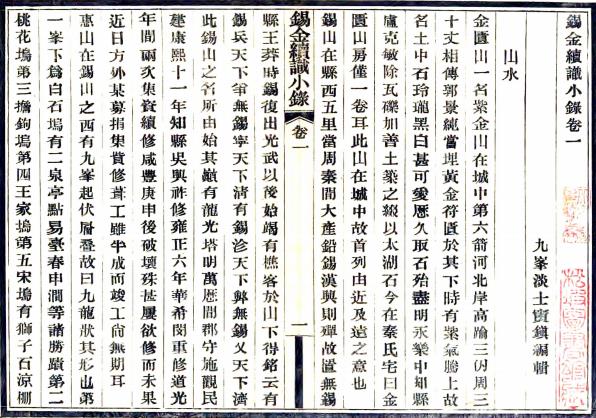 錫金續識小錄卷一
九峯淡士竇鎮編輯
山水
金匱山一名紫金山在城中第六箭河北岸高踰三仞周三
十丈相傳郭景純嘗埋黃金符匱於其下時有紫氣騰上故
名土中石玲瓏黑白甚可愛歷久取石殆盡明永樂中知縣
盧克敏除瓦礫加善土築之綴以太湖石今在秦氏宅曰金
匱山房僅一卷耳此山在城中故首列由近及遠之意也
錫山在縣西五里當周秦間大產鉛錫漢興則殫故置無錫
縣王莽時錫復出光武以後始竭有樵客於山下得銘云有
錫兵天下爭無錫寧天下清有錫沴天下弊無錫乂天下濟
此錫山之名所由始其巔有龍光塔明萬歷間郡守施觀民
建康熙十一年知縣吳興祚修雍正六年華希閔重修道光
年間兩次集資續修咸豐庚申後破壞殊甚屢欲修而未果
近日方外某募捐集貲修葺工雖半成而竣工尚無期耳
惠山在錫山之西有九峯起伏層疊故曰九龍狀其形也第
一峯下爲白石塢有二泉亭點易臺春申澗等諸勝蹟第二
桃花塢第三擔鉤塢第四王家塢第五宋塢有獅子石涼棚
錫金續識小錄
卷一
一